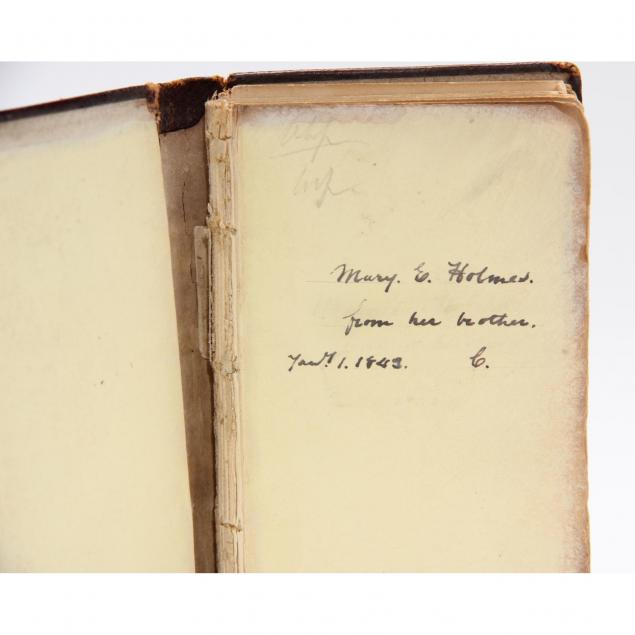 Mary. E. Holmes.
from her brother.
Jany. 1. 1843. C.